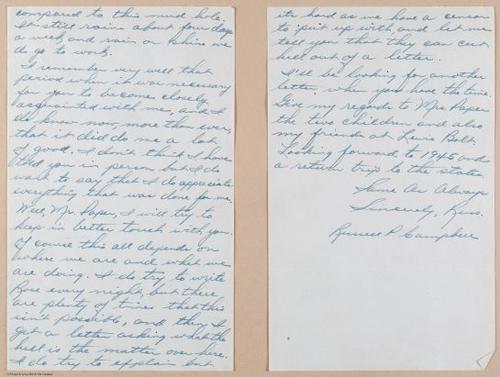 compared to this mud hole.
It still rains about four days
a week and rain or shine we
do go to work.
I remember very well that
period when it was necessary
for you to become closely
acquainted with me, and I
do know now more than ever,
that it did do me a lot
of good. I don't think I have
told you in person but I do
want to say that I do appreciate
everything that was done for me.
Well Mr. Paper, I will try to
keep in better touch with you.
Of course this all depends on
where we are and what we
are doing. I do try to write
Rose every night, but there
are plenty of times that this
isn't possible, and they I
get a letter asking what the
hell is the matter over here.
I do try to explain but
its hard as we have a censor
to put up with, and let me
tell you that they can cut
hell out of a letter.
I'll be looking for another
letter, when you have the time.
Give my regards to Mrs Paper
the two children and also
my friends at Lewis Bolt.
Looking forward to 1945 and
a return trip to the states
Same As Always
Sincerely, Russ.
Russell P Campbell